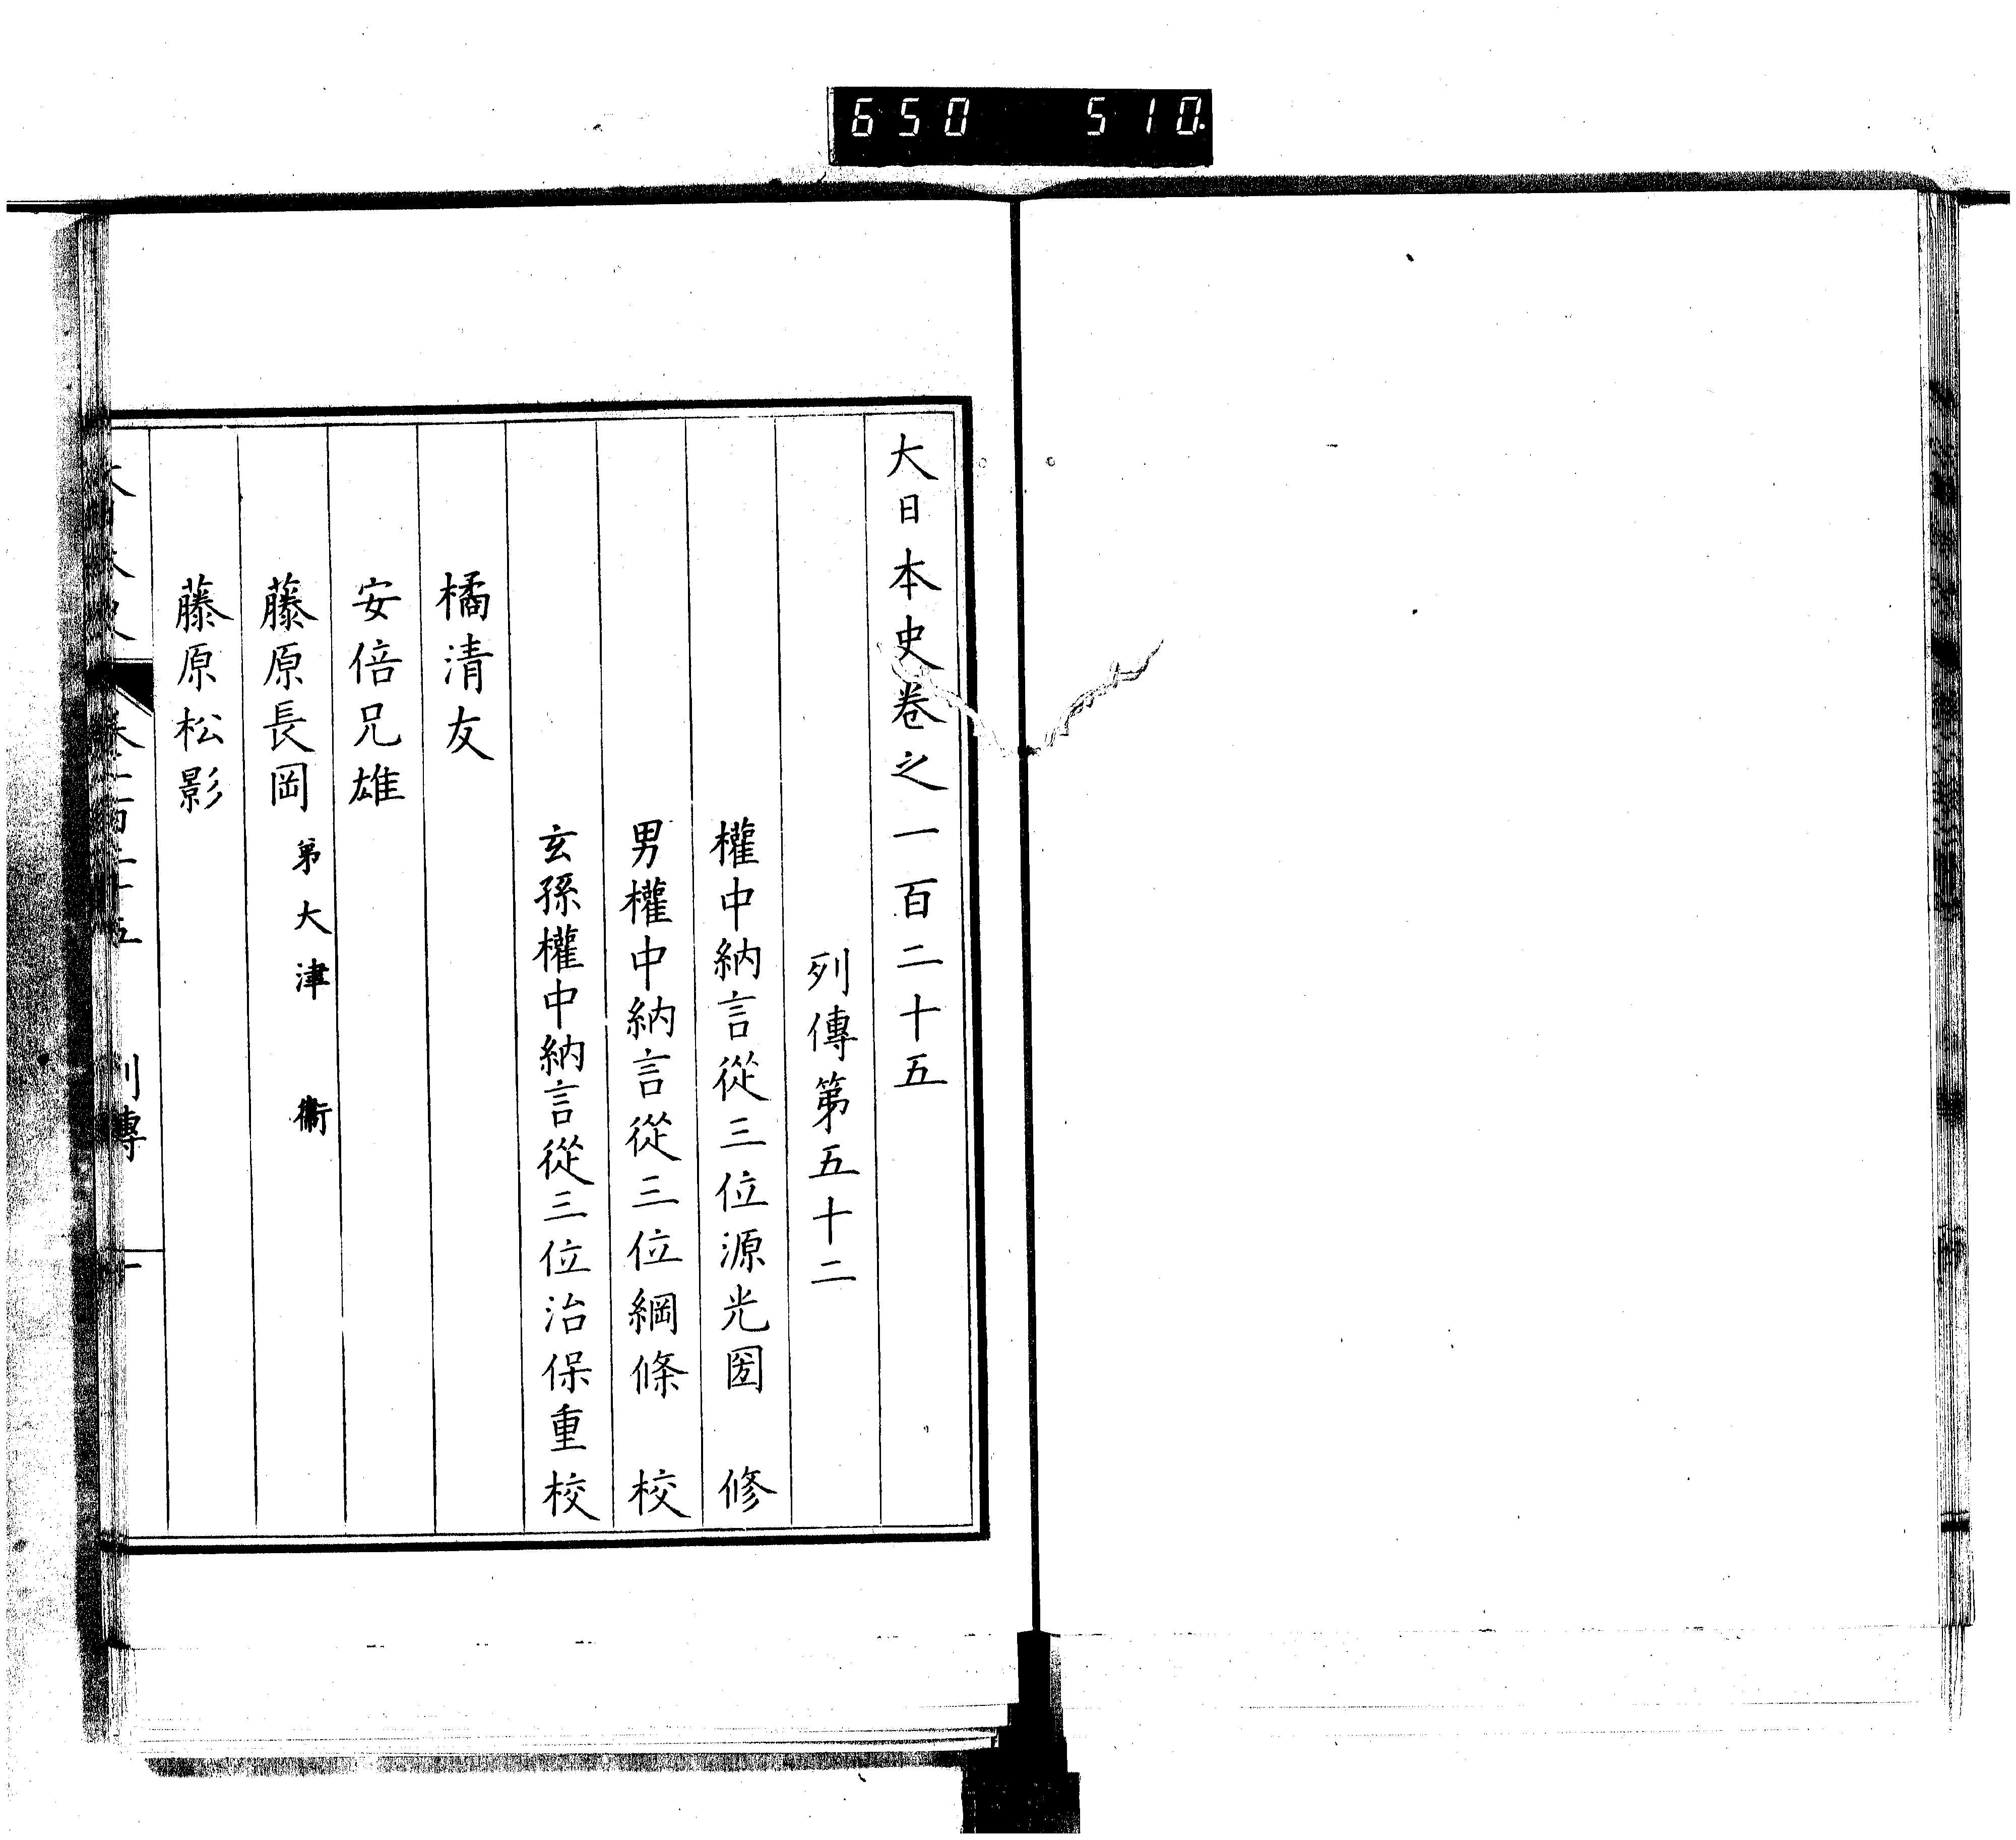 650 510
大日本史卷之一百二十五
列傳第五十二
權中納言從三位源光圀 修
男權中納言從三位綱條 校
玄孫權中納言從三位治保重校
橘清友
安倍兄雄
藤原長岡 弟大津 衛
藤原松影